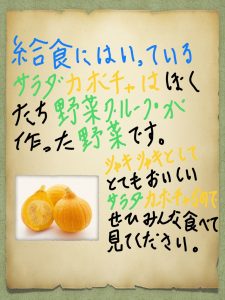 給食にはいっている
サラダカボチャはぼく
たち野菜グループが
作った野菜です。
シャキシャキとして
とてもおいしい
サラダカボチャなので
ぜひみんな食べて
見てください。